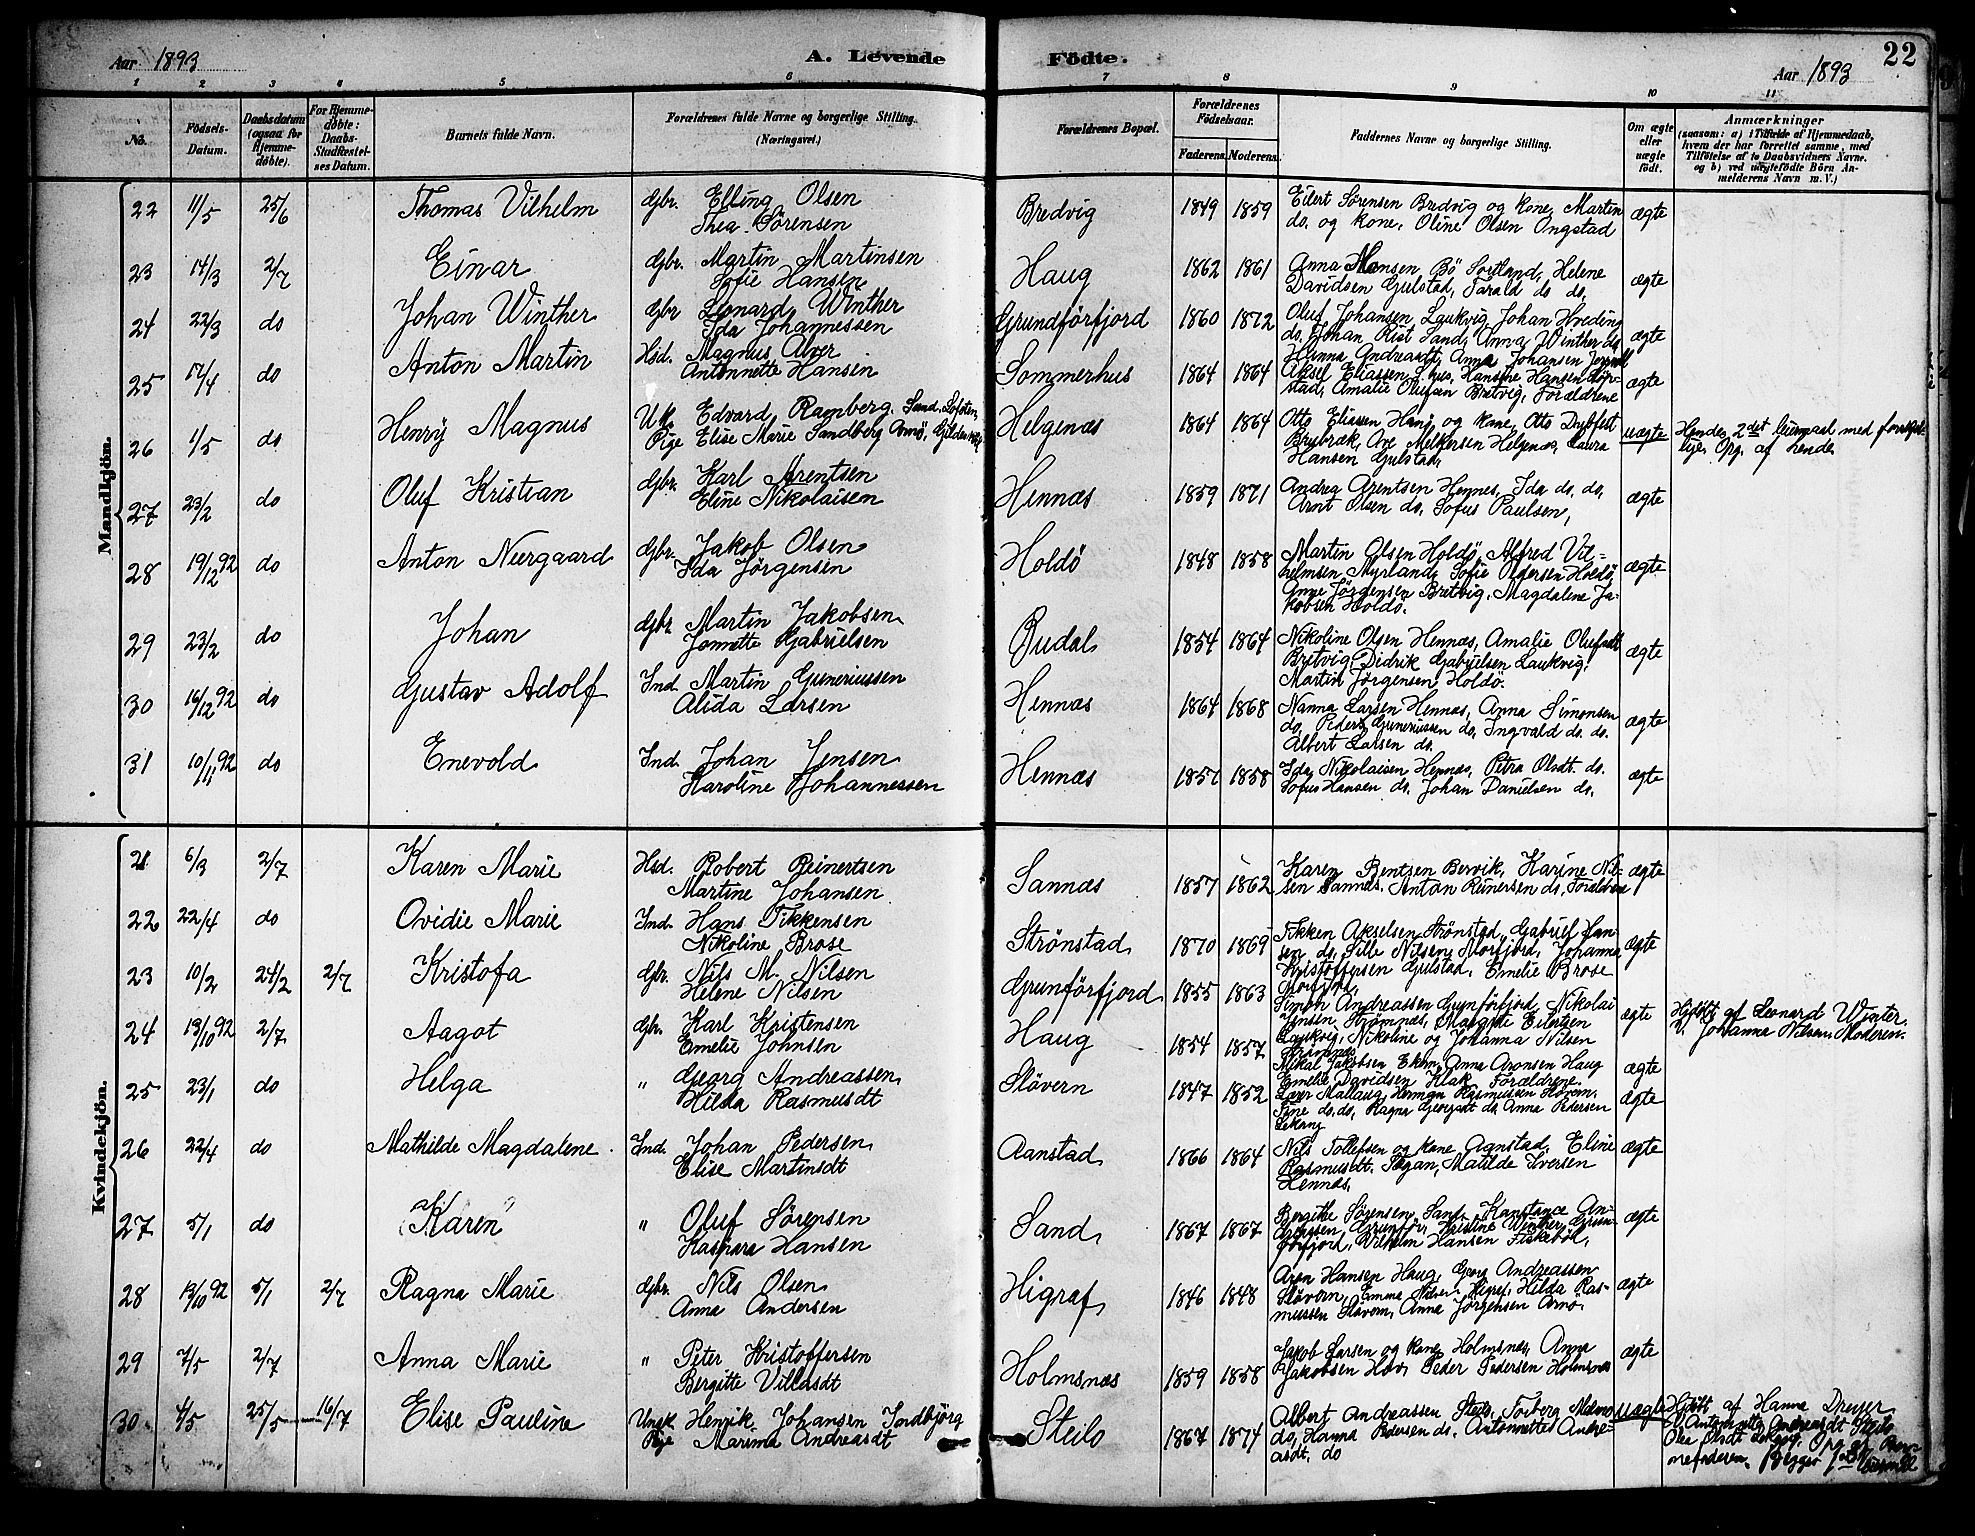 Aar 1893 A. Levende Födte. Aar 1893 22
1 2 3 4 5 6 7 8 9 10 11
No. Födsels-Datum. Daabsdatum (ogsaa for Hjemmedöbte). For Hjemmedöbte: Daabs-Stadfæstelses Datum. Barnets fulde Navn. Forældrenes fulde Navne og borgerlige Stilling. (Næringsvei.) Forældrenes Bopæl. Forældrenes Födselsaar. Faderens. Moderens. Faddernes Navne og borgerlige Stilling. Om ægte eller uægte födt. Anmærkninger (saasom: a) i Tilfælde af Hjemmedaab, hvem der har forrettet samme, med Tilföielse af to Daabsvidners Navne, og b) ved uægtefödte Börn Anmelderens Navn m. V.)
Mandkjön.
22 11/5 25/6 Thomas Vilhelm Gbr. Elling Olsen Bredvig 1849 1859 Eilert Sørensen Bredvig og Kone, Martin ægte
Thea Sörensen do. og Kone, Oline Olsen Ongstad
23 14/3 2/7 Einar Gbr. Martin Martinsen Haug 1862 1861 Anna Hansen Bö Sortland, Helene ægte
Sofie Hansen Davidsen Gulstad, Tarald do do,
24 22/3 do Johan Winther Gbr Leonard Winther Grundförfjord 1860 1872 Oluf Johansen Laukvig, Johan Hveding ægte
Ida Johannessen do, Johan Rist Sand, Anna Winther do
25 12/4 do Anton Martin Hsd. Magnus Alver Sommerhus 1864 1864 Hanna Andreasdt, Anna Johansen ægte
Antonnette Hansen Aksel Eliassen S.hus, Hansine Hansen
stad, Amalie Olufsen Bretvig, Forældrene
26 1/5 do Henry Magnus Uk. Edvard Ramberg, Sand, Lofoten Helgenæs 1864 1864 Otto Eliassen Hanö og Kone, Otto Dybfest uægte Hendes 2det Leiermaal med forskjel-
Pige Elise Marie Sandberg Arnö, Gildeskaal Brubræk, Ove Melkersen Helgenæs, Laura lige. Opg. af hende
Hansen Gulstad,
27 23/2 do Oluf Kristian Gbr. Karl Arentsen Hennæs 1859 1871 Andrea Arentsen Hennes, Ida do. do, ægte
Eline Nikolaisen Arnt Olsen do, Sofus Paulsen,
28 19/12 92 do Anton Neergaard Gbr. Jakob Olsen Holdö 1848 1858 Martin Olsen Holdö, Alfred Vil- ægte
Ida Jörgensen helmsen Myrland, Sofie Olsen Holdö,
Anne Jörgensen Bretvig, Magdalene Ja-
kobsen Holdö.
29 23/2 do Johan Gbr. Martin Jakobsen Budal 1854 1864 Nikoline Olsen Hennæs, Amalie Olufsdt ægte
Jonnette Gabrielsen Bretvig, Didrik Gabrielsen Laukvig,
Martin Jörgensen Holdö.
30 16/12 92 do Gustav Adolf Ind. Martin Guneriussen Hennæs 1864 1868 Nanna Larsen Hennæs, Anna Simonsen ægte
Alida Larsen do, Peder Guneriussen do, Ingvald do. do.
Albert Larsen do.
31 10/11 92 do Enevold Ind. Johan Jensen Hennæs 1857 1858 Ida Nikolaisen Hennæs, Petra Olsdt. do. ægte
Karoline Johannessen Sofus Hansen do. Johan Danielsen do.
Kvindekjön.
21 6/3 2/7 Karen Marie Hsd. Robert Reinertsen Sannæs 1857 1862 Karen Bentsen Bervik, Karine Nil- ægte
Martine Johansen sen Sannæs, Anton Reinersen do, Forældrene
22 22/4 do Ovidie Marie Ind. Hans Tikkensen Strönstad 1870 1869 Tikken Akselsen Strönstad, Gabriel Han- ægte
Nikoline Brose sen do, Sille Nilsen Morfjord, Johanna
Kristoffersen Gulstad, Emelie Brose
Morfjord,
23 10/2 24/2 2/7 Kristofa Gbr. Nils M. Nilsen Grunförfjord 1855 1863 Simon Andreassen Grunförfjord, Nikolai ægte Hjdöbt af Leonard Winter
Helene Nilsen Jensen Strömnæs, Magda Eilertsen V. Johanna Nilsen, Moderen.
Laukvig, Nikoline og Johanna Nilsen
Strömnæs
24 13/10 92 2/7 Aagot Gbr. Karl Kristensen Haug 1854 1857 Mikal Jakobsen Ekren, Anna Aronsen Haug ægte
Emelie Johnsen Emelie Davidsen Klak, Forældrene
25 23/1 do Helga " Georg Andreassen Slövern 1847 1852 Lærer Mallaug, Herman Rasmussen Hövern, ægte
Hilda Rasmusdt Tine do. do, Ragna Georgsdt do, Anna Pedersen
26 22/4 do Mathilde Magdalene Ind. Johan Pedersen Aanstad 1866 1864 Nils Tollefsen og Kone Aanstad, Eline ægte
Elise Martinsdt Rasmusdt. Skgan, Matilde Iversen
Hennæs.
27 5/1 do Karen " Oluf Sörensen Sand 1867 1867 Bergitte Sörensen Sand, Konstance An- ægte
Kaspara Hansen dreassen Grunför, Kristine Winther, Grun-
förfjord, Vilhelm Hansen Fiskeböl,
28 13/10 92 5/1 2/7 Ragna Marie Gbr. Nils Olsen Higraf 1846 1848 Aron Hansen Haug, Georg Andreassen ægte
Anna Andersen Slövern, Emma Nilsen Higraf, Hilda Ras-
mussen Slövern, Anna Jörgensen Arnö
29 7/5 2/7 Anna Marie " Peter Kristoffersen Holmsnæs 1859 1858 Jakob Larsen og Kone Holmsnæs, Anna ægte
Bergitte Villasdt Jakobsen Hov, Peder Pedersen Holmsnæs
30 4/5 25/5 16/7 Elise Pauline Ungk. Henrik Johansen Indbjörg Steilo 1867 1874 Albert Andreassen Steilo, Torberg Nilsen uægte Hjdöbt af Hanna Dreyer
Pige Marima Andreasdt do, Hanna Pedersen do, Antonnette Andre- V. Antonette Andreasdt Steilo
asdt. do Olea Olsdt Opg. af Barne-
nefaderen. Begges 1ste Leierm.